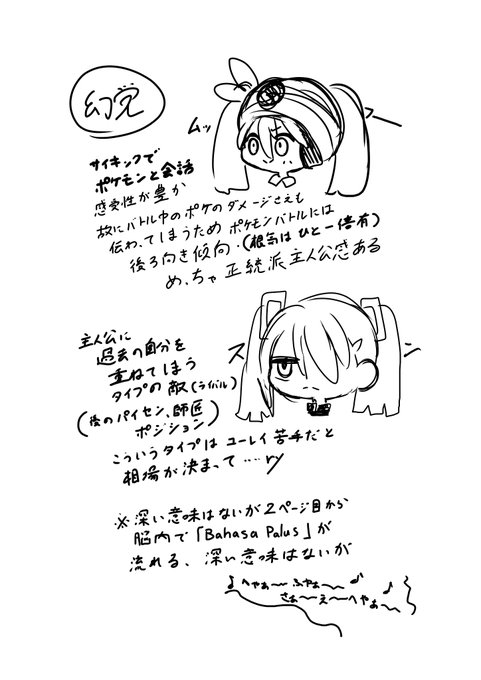 幻覚
ムッ
サイキックで
ポケモンと会話
感受性が豊か
故にバトル中のポケのダメージさえも
伝わってしまうためポケモンバトルには
後ろ向き傾向.(根気はひと一倍有)
めっちゃ正統派主人公感ある
主人公に
過去の自分を
重ねてしまう
タイプの敵(ライバル)
(後のパイセン、師匠
ポジション)
スン
こういうタイプはユーレイ苦手だと
相場が決まって……ry
※深い意味はないが2ページ目から
脳内で「Bahasa Palus」が
流れる、深い意味はないが
♪へやぁ〜ふやぁ〜♪
さぁ〜え〜へやぁ〜♪